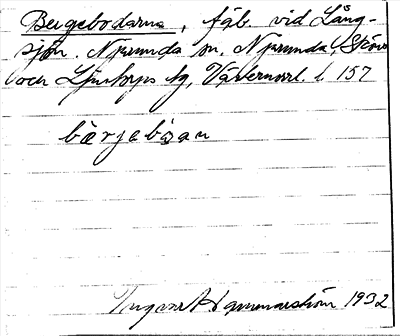 Bergebodarna, fäb. vid Lång-
sjön. Njurunda sn, Njurunda, Sköns
och Ljustorps tg, Västernorrl. l. 157
bærjebωan
Ingvar Hammarström 1932